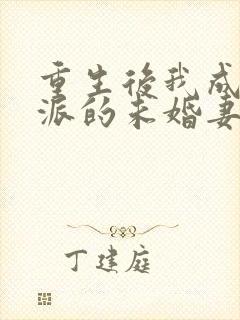 重生後我成
派的未婚妻
丁建庭